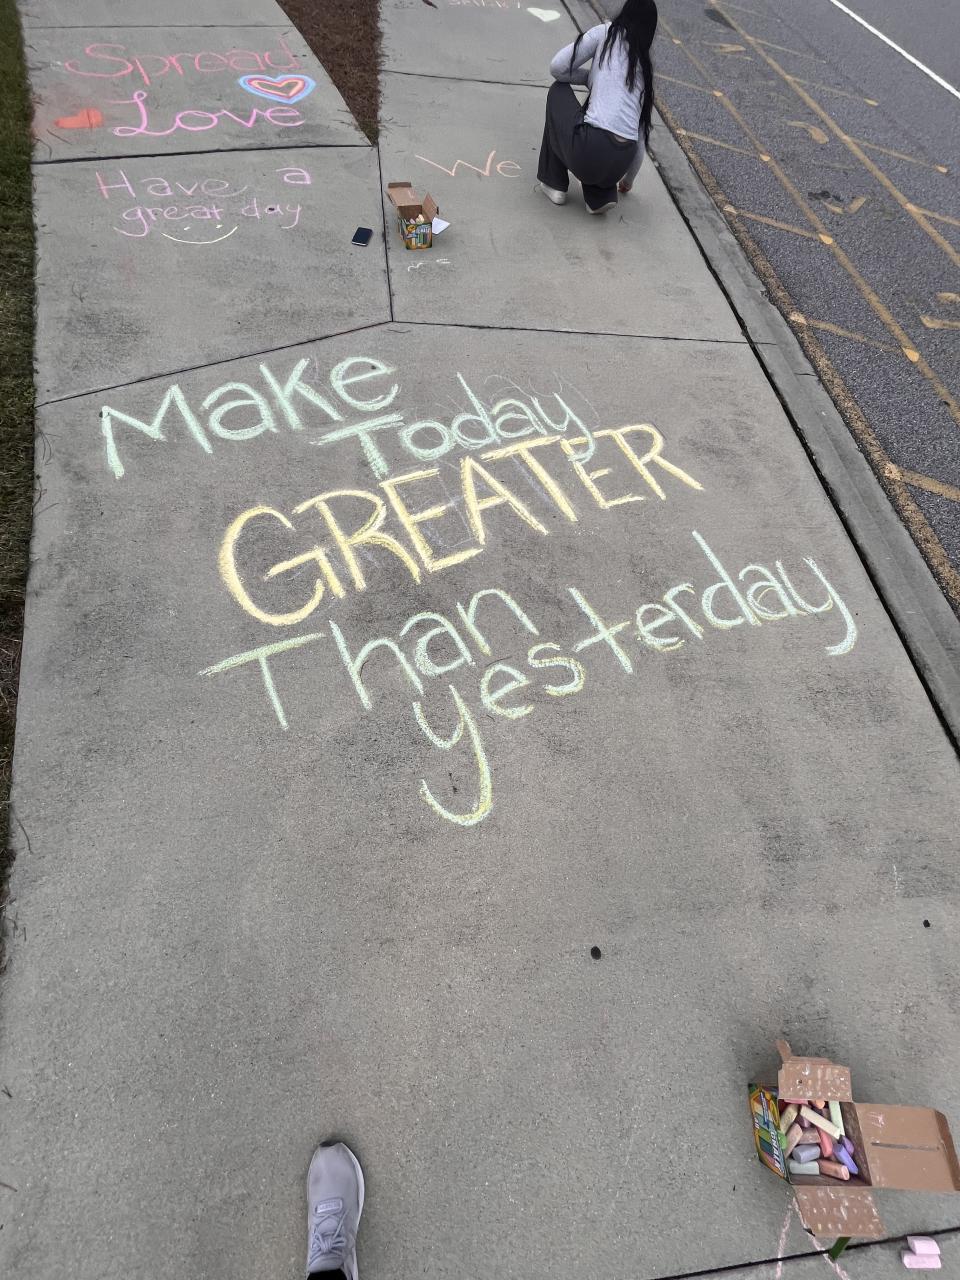 Spread
Love
Have a
great day
We
Make
Today
GREATER
Than
yesterday